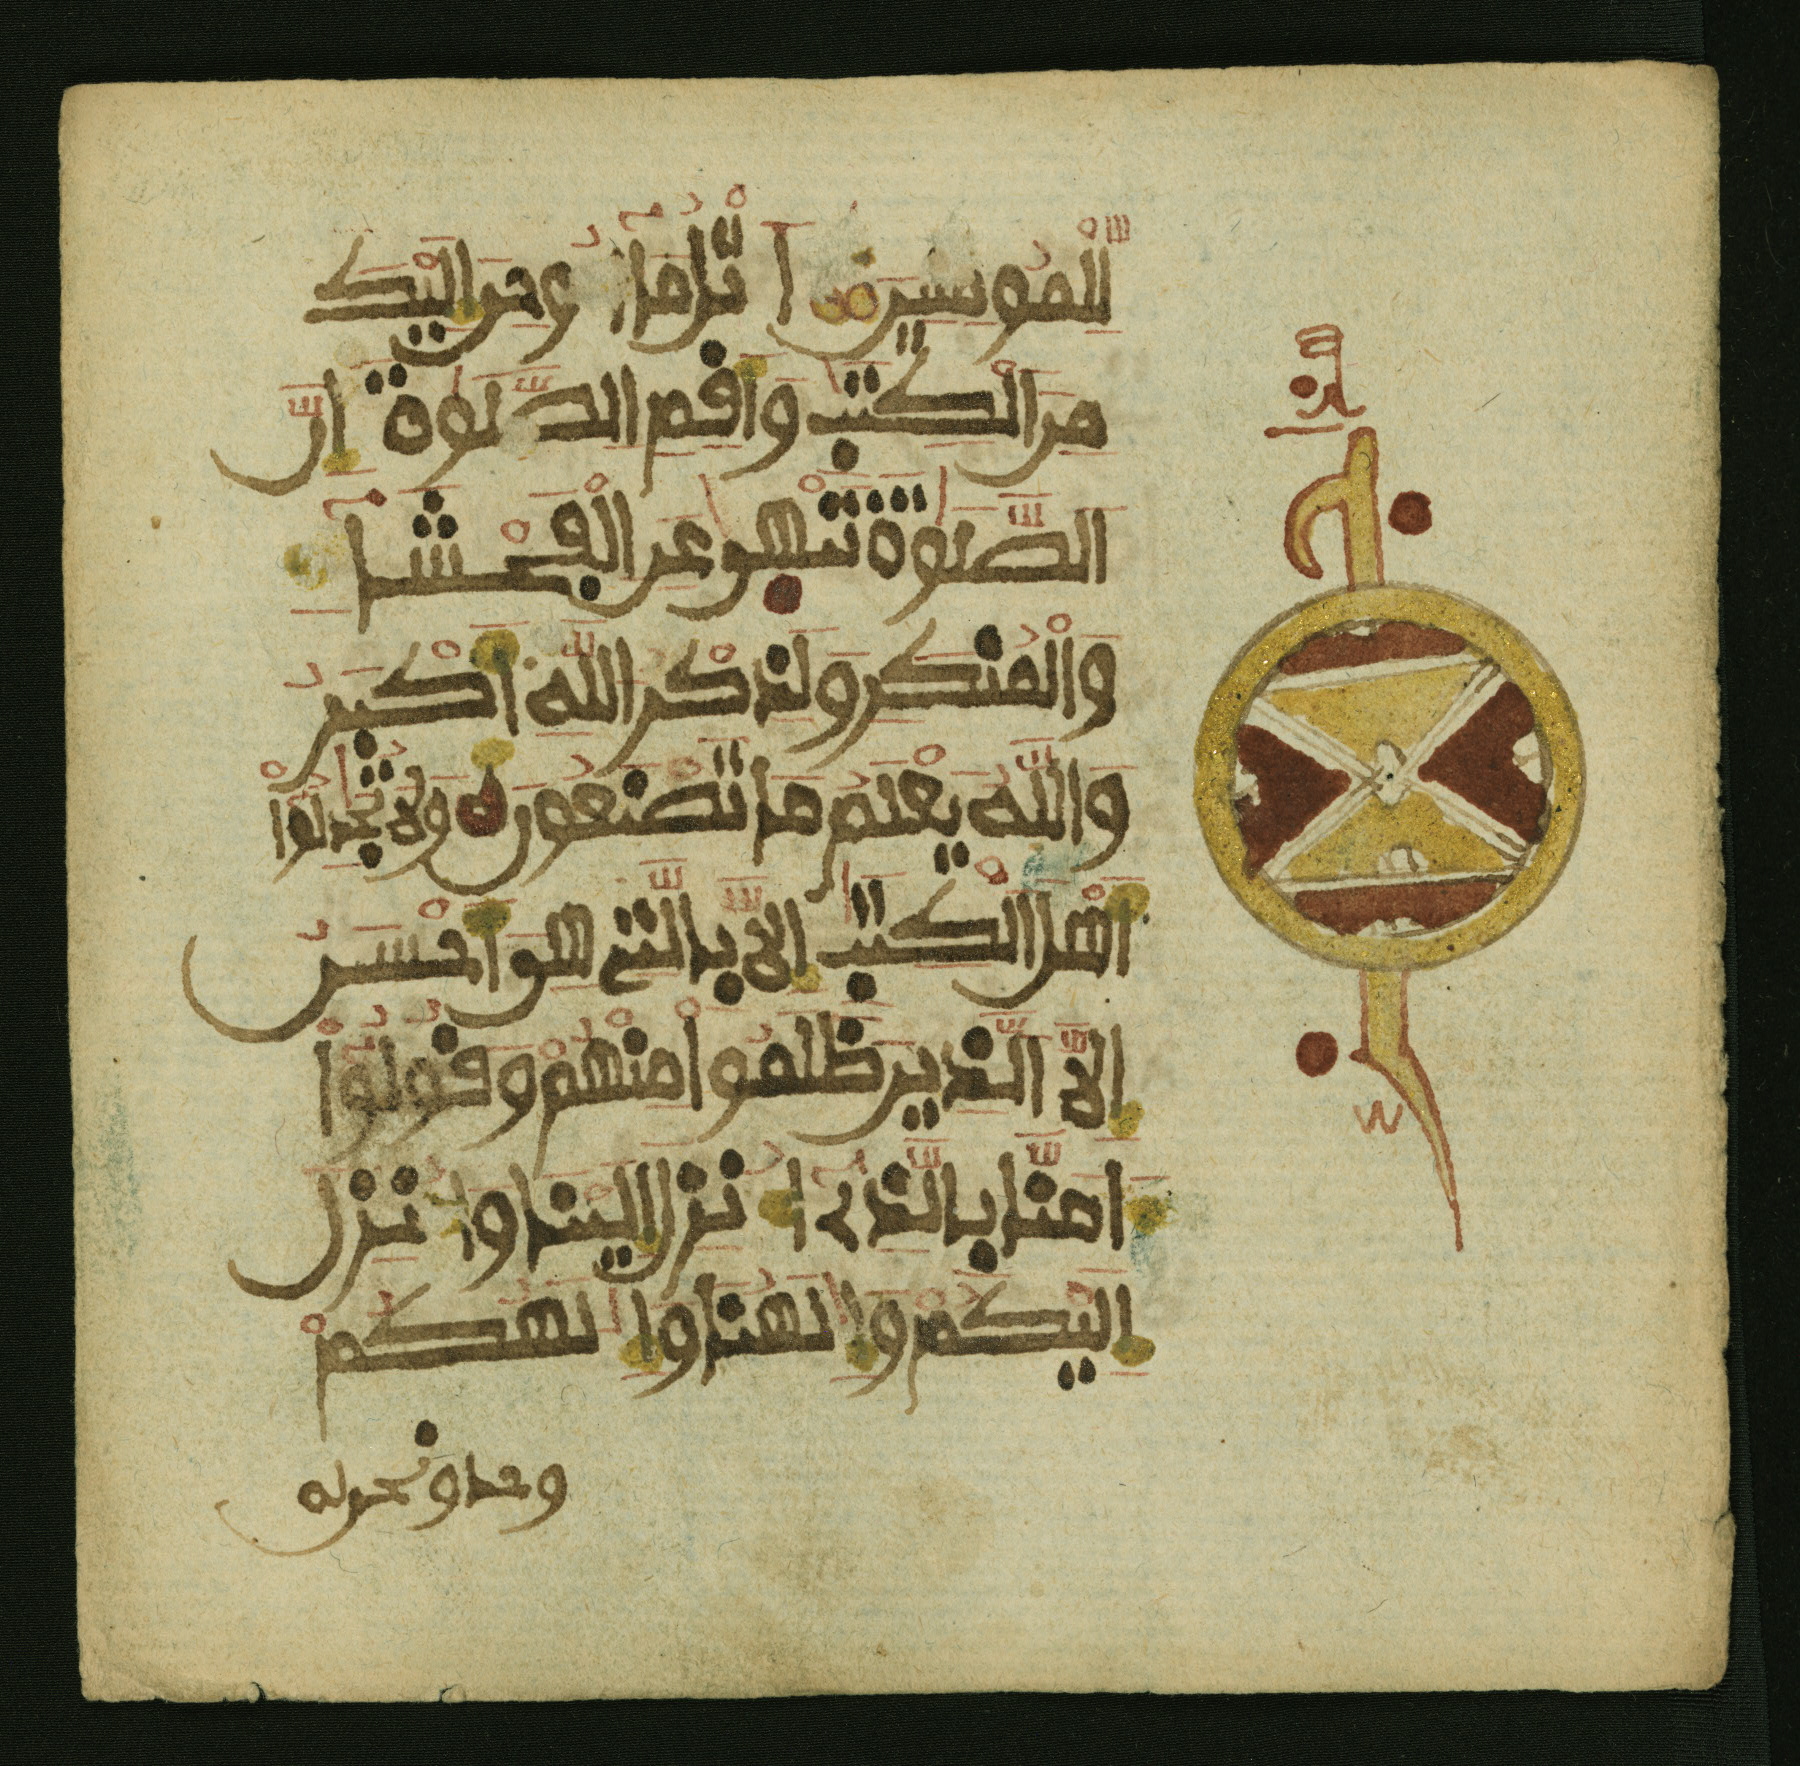 لِّلْمُومِنِينَ اتْلُ مَا أُوحِيَ إِلَيْكَ
مِنَ الْكِتَٰبِ وَأَقِمِ الصَّلَوٰةَ إِنَّ
الصَّلَوٰةَ تَنْهَىٰ عَنِ الْفَحْشَاءِ
وَالْمُنكَرِ وَلَذِكْرُ اللَّهِ أَكْبَرُ
وَاللَّهُ يَعْلَمُ مَا تَصْنَعُونَ وَلَا تُجَٰدِلُوا
أَهْلَ الْكِتَٰبِ إِلَّا بِالَّتِي هِيَ أَحْسَنُ
إِلَّا الَّذِينَ ظَلَمُوا مِنْهُمْ وَقُولُوا
ءَامَنَّا بِالَّذِي أُنزِلَ إِلَيْنَا وَأُنزِلَ
إِلَيْكُمْ وَإِلَٰهُنَا وَإِلَٰهُكُمْ
وحد ونحن له